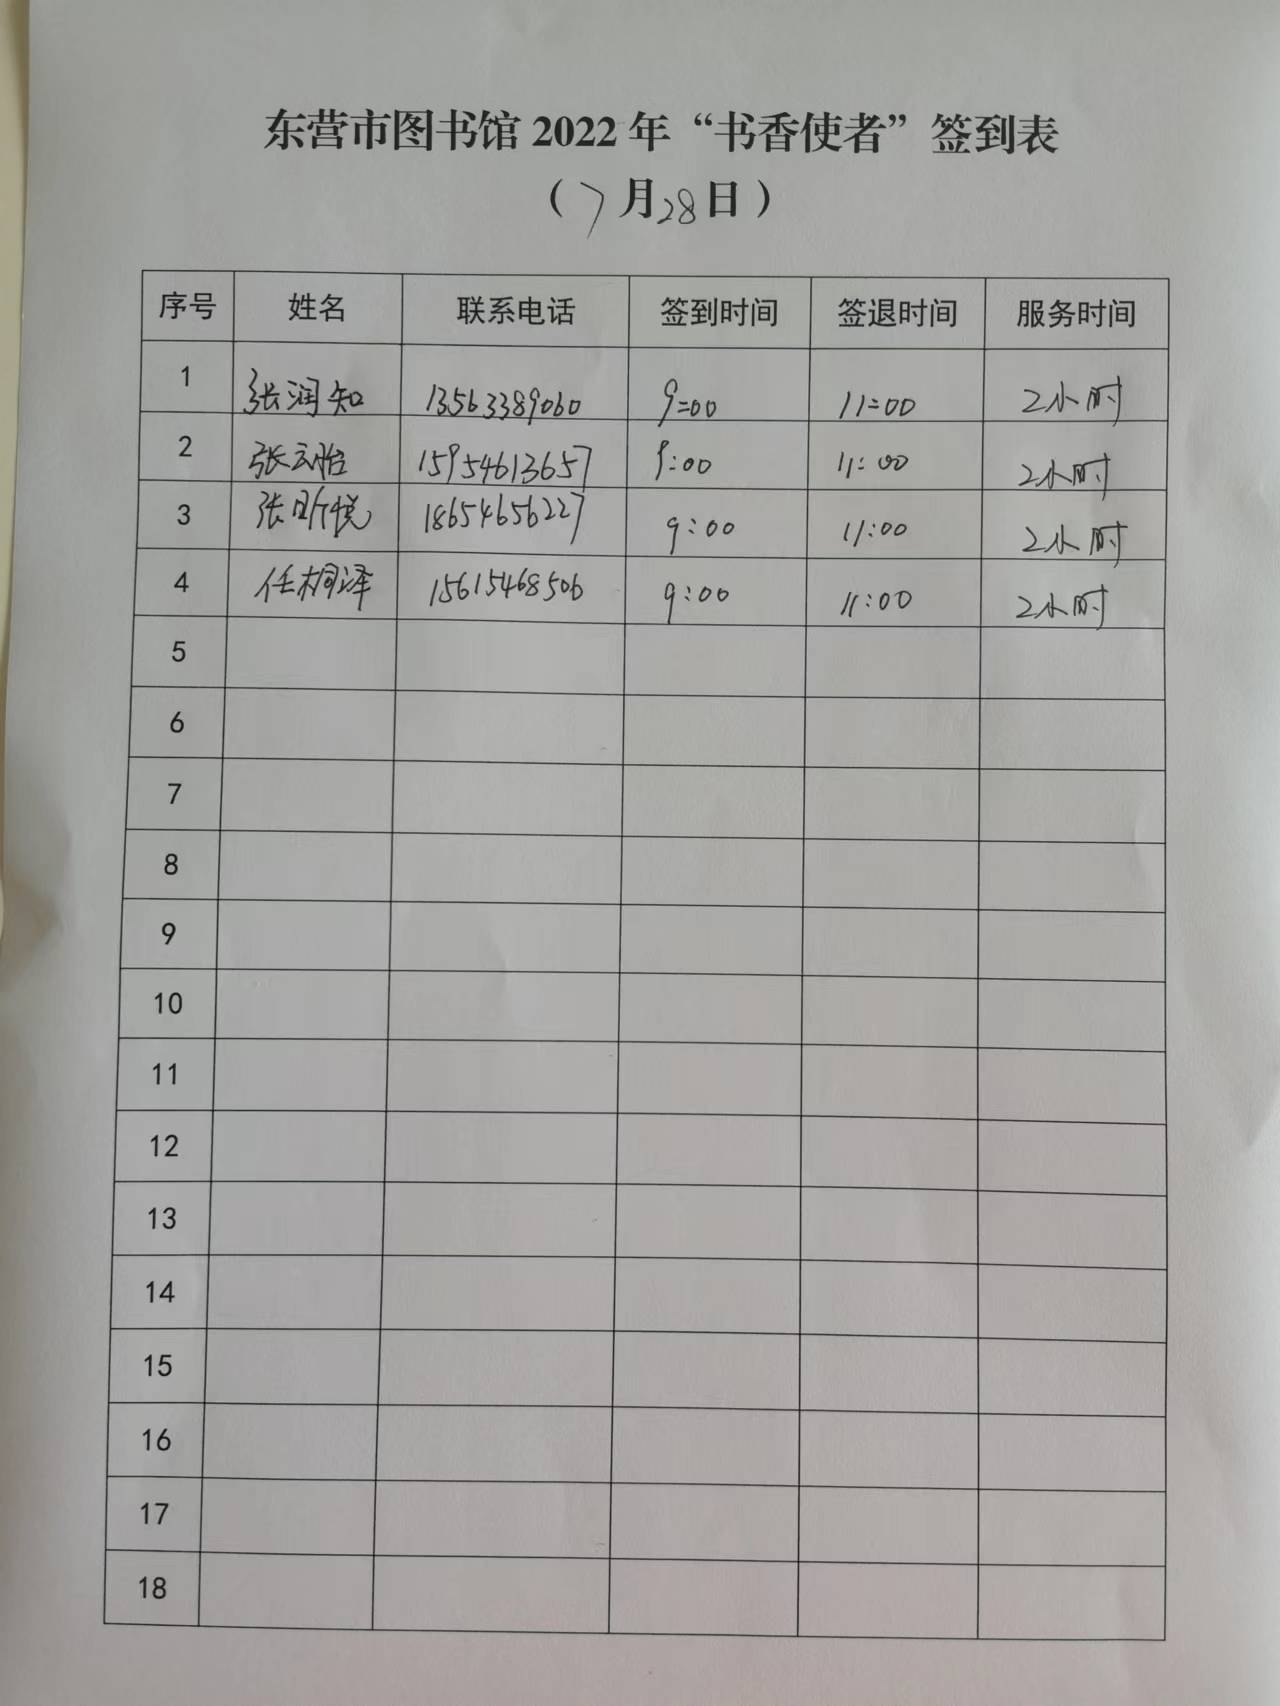 东营市图书馆 2022 年“书香使者”签到表
（7月28日）
序号 姓名 联系电话 签到时间 签退时间 服务时间
1 张润知 13563389060 9:00 11:00 2小时
2 张云怡 15954613657 9:00 11:00 2小时
3 张昕悦 18654656227 9:00 11:00 2小时
4 任桐泽 15615468506 9:00 11:00 2小时
5
6
7
8
9
10
11
12
13
14
15
16
17
18